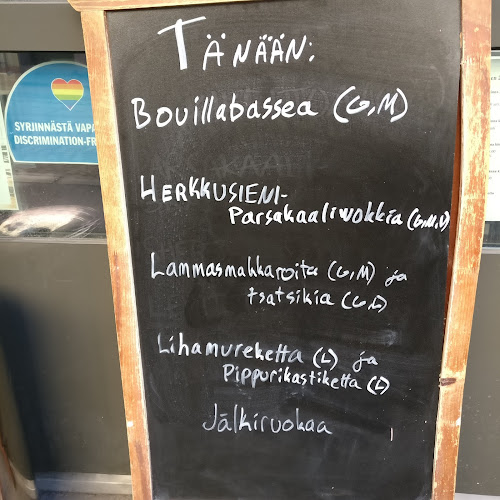 TÄNÄÄN:
Bouillabassea (G,M)
HERKKUSIENI-
Parsakaaliwokkia (G,M,V)
Lammasmakkaroita (G,M) ja
tsatsikia (G,L)
Lihamureketta (L) ja
Pippurikastiketta (L)
Jälkiruokaa
SYRJINNÄSTÄ VAPA
DISCRIMINATION-FR